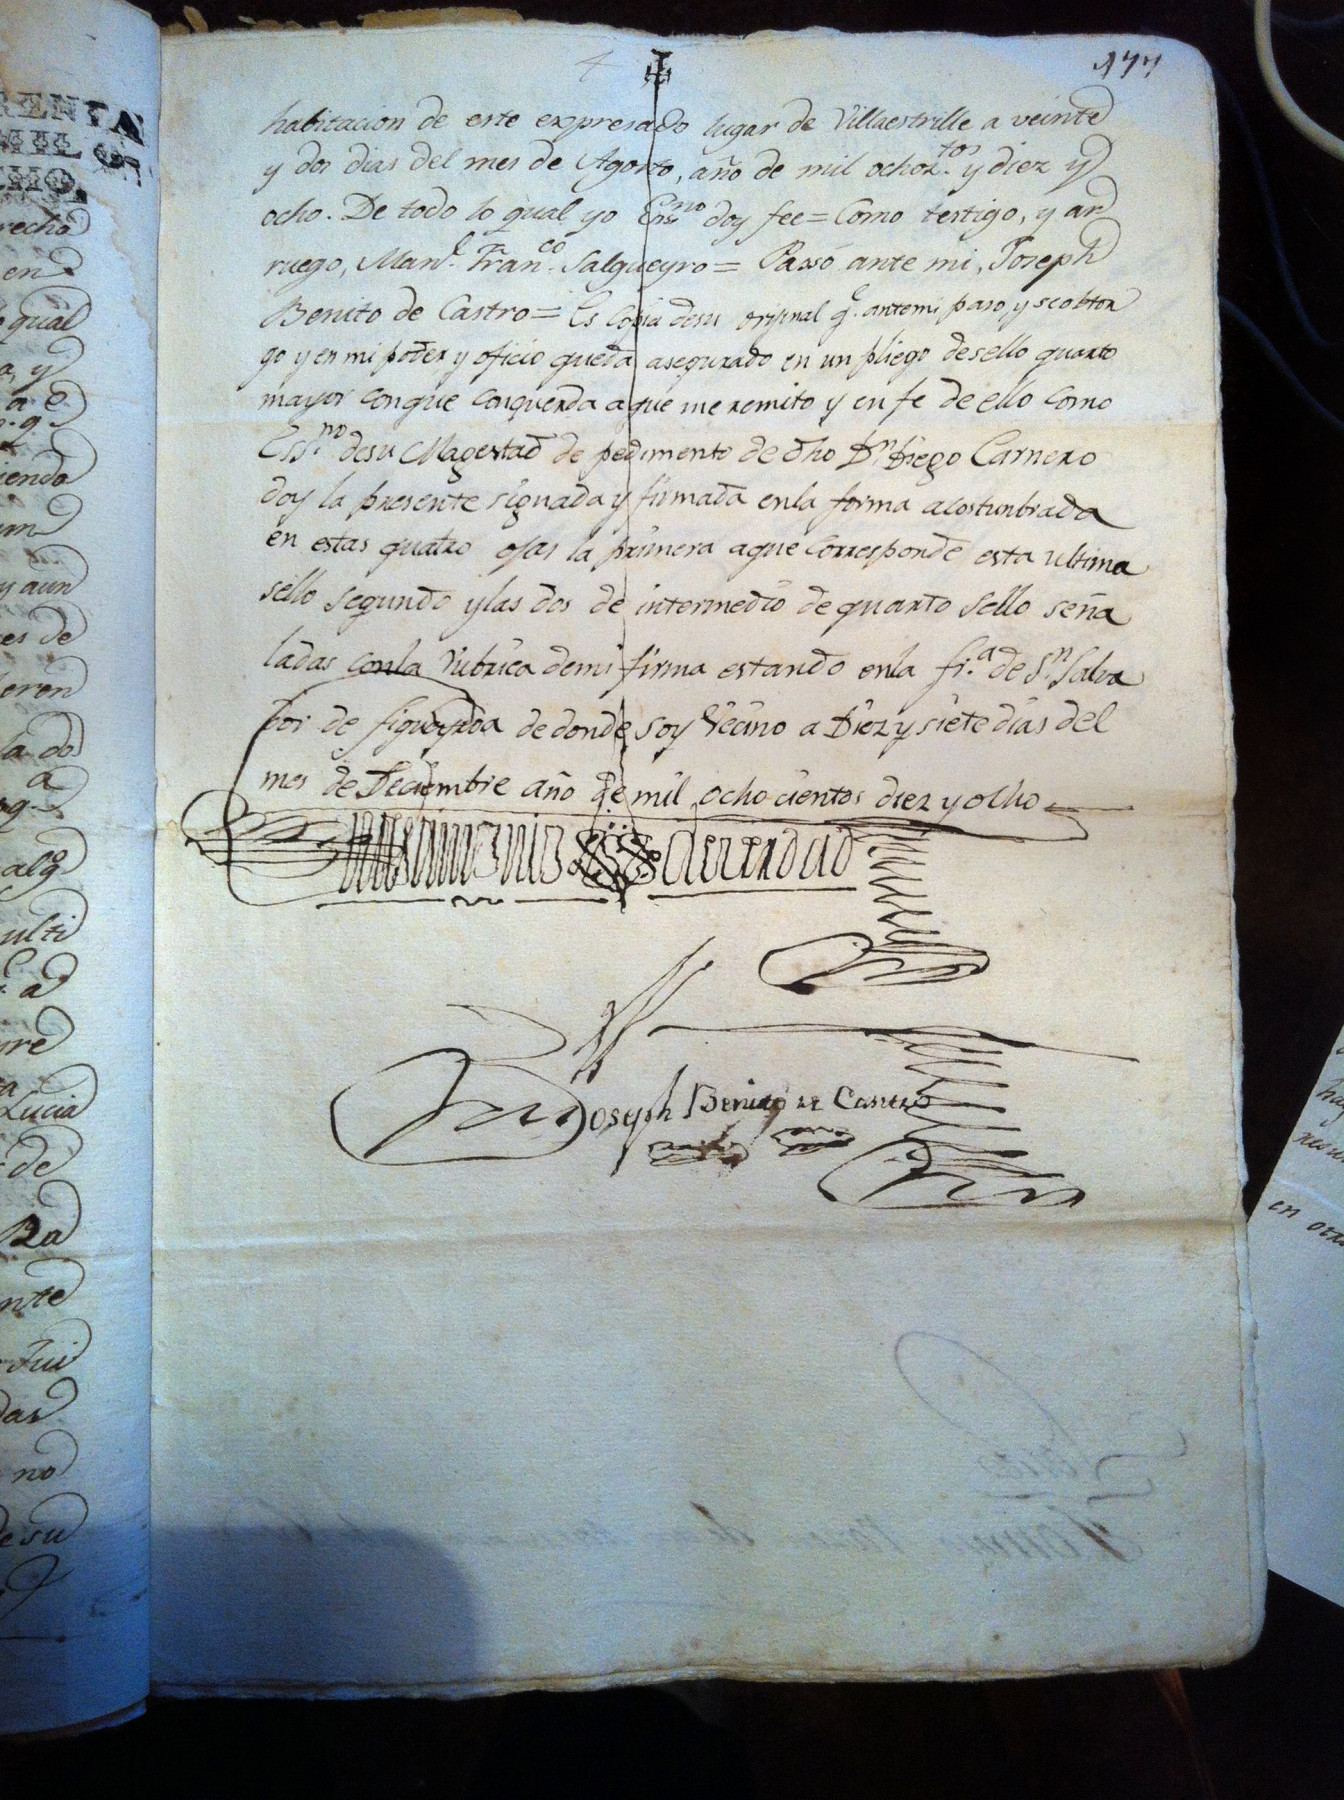 177
habitacion de este expresado lugar de Villaestrille a veinte
y dos dias del mes de Agosto, año de mil ochoz.tos y diez y
ocho. De todo lo qual yo Ess.no doy fee = Como testigo, y a r
ruego, Man.l Fran.co Salgueyro = Passó ante mi, Joseph
Benito de Castro = Es Copia desu orijinal q.e antemi paso, y se obtor
go y en mi poder y oficio queda asegurado en un pliego de sello quarto
mayor conque conquerda aque me remito y en fe de ello Como
Ess.no desu Magestad de pedimento de dho Dn. Diego Carnero
doy la presente signada y firmada enla forma acostunbrada
en estas quatro ojas la primera aque Corresponde esta ultima
sello Segundo ylas dos de intermedio de quarto Sello seña
ladas conla rubrica demi firma estando enla fr.a de Sn. Salva
dor de figueyroa de donde soy Vecino a Diez y siete dias del
mes de Deciembre año de mil ocho cientos diez y ocho
Intestimonio de verdad
Joseph Benito de Castro
RENTA
MIL
OCHO
recho
en
qual
a, y
iendo
y aun
es de
eren
la do
alg
ulti
Lucia
de
nte
Jui
das
no
de su
en otra